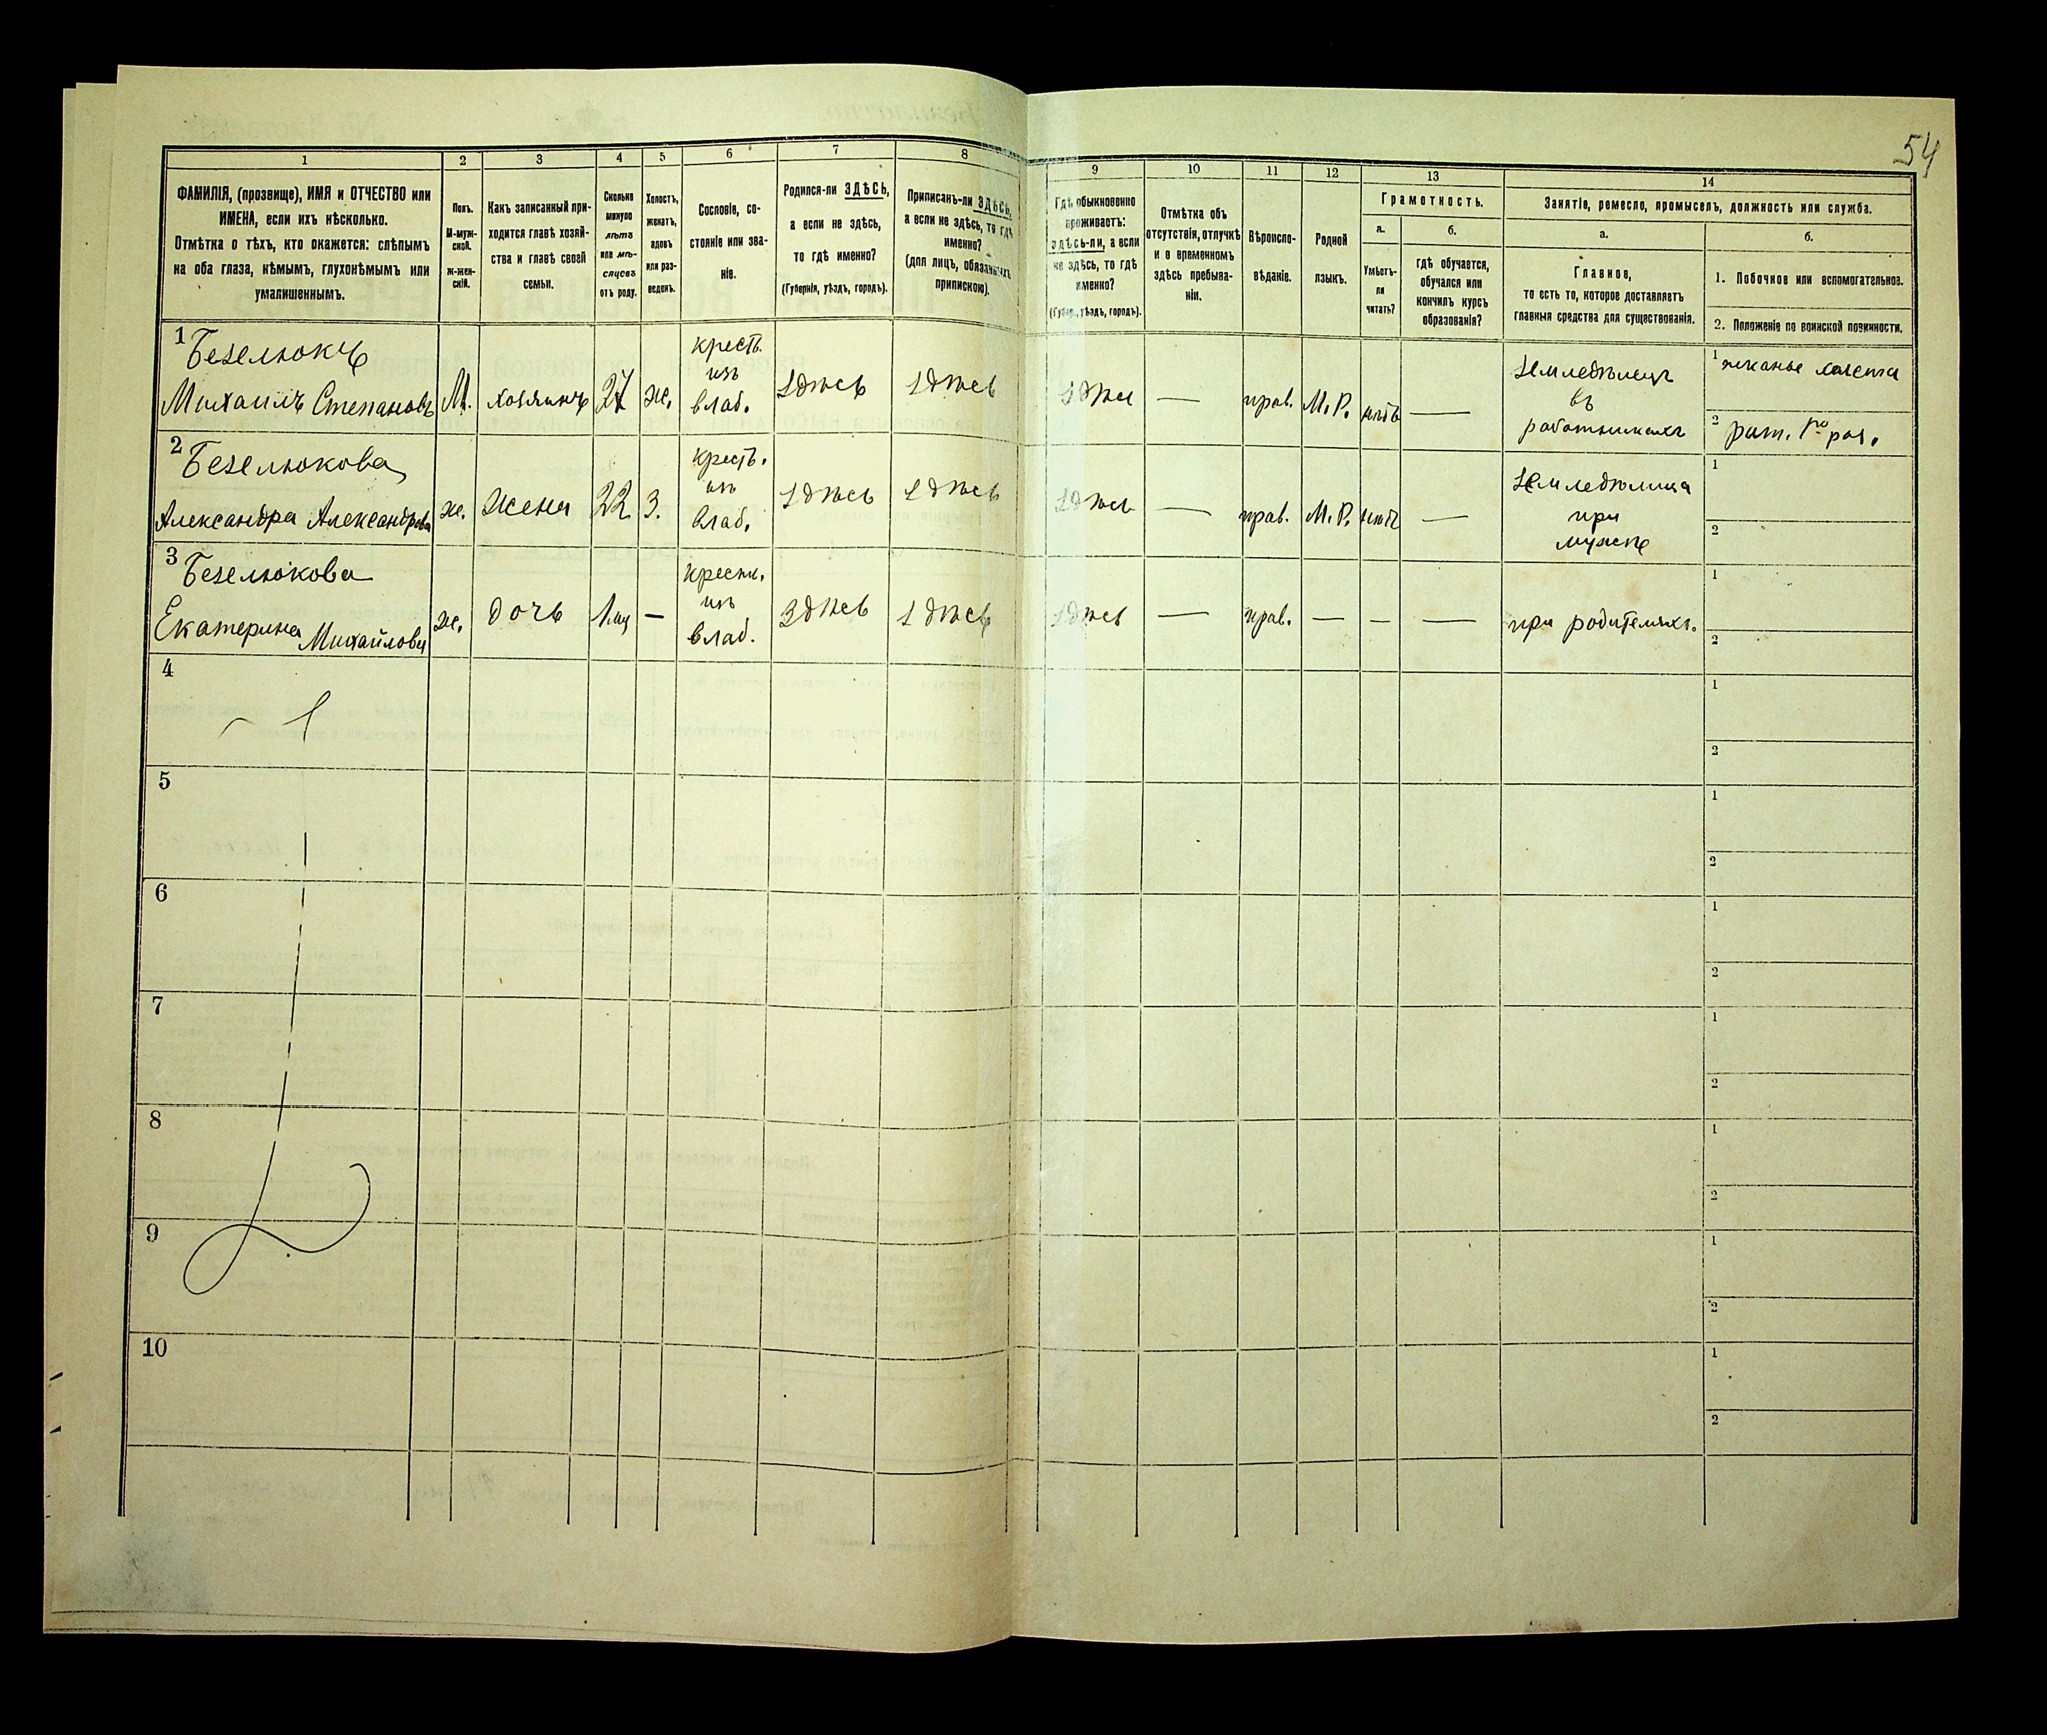 54
1
2
3
4
5
6
7
8
9
10
11
12
13
14
ФАМИЛІЯ, (прозвище), ИМЯ и ОТЧЕСТВО или
ИМЕНА, если ихъ нѣсколько.
Отмѣтка о тѣхъ, кто окажется: слѣпымъ
на оба глаза, нѣмымъ, глухонѣмымъ или
умалишеннымъ.
Полъ.
М-муж-
ской.
ж-жен-
скій.
Какъ записанный при-
ходится главѣ хозяй-
ства и главѣ своей
семьи.
Сколько
минуло
лѣтъ
или мѣ-
сяцевъ
отъ роду.
Холостъ,
женатъ,
вдовъ
или раз-
веденъ.
Сословіе, со-
стояніе или зва-
ніе.
Родился-ли ЗДѢСЬ,
а если не здѣсь,
то гдѣ именно?
(Губернія, уѣздъ, городъ).
Приписанъ-ли ЗДѢСЬ,
а если не здѣсь, то гдѣ
именно?
(для лицъ, обязанныхъ
припискою).
Гдѣ обыкновенно
проживаетъ:
здѣсь-ли, а если
не здѣсь, то гдѣ
именно?
(Губер., уѣздъ, городъ).
Отмѣтка объ
отсутствіи, отлучкѣ
и о временномъ
здѣсь пребыва-
ніи.
Вѣроиспо-
вѣданіе.
Родной
языкъ.
Грамотность.
а.
Умѣетъ-
ли
читать?
б.
гдѣ обучается,
обучался или
кончилъ курсъ
образованія?
Занятіе, ремесло, промыселъ, должность или служба.
а.
Главное,
то есть то, которое доставляетъ
главныя средства для существованія.
б.
1. Побочное или вспомогательное.
2. Положеніе по воинской повинности.
1
Безелюкъ
Михаилъ Степановъ
М.
хозяинъ
27
ж.
крест.
изъ
влад.
здѣсь
здѣсь
здѣсь
—
прав.
М.Р.
нѣтъ
—
земледѣлецъ
въ
работникахъ
1
тканье холста
2
рат. 1го раз.
2
Безелюкова
Александра Александрова
ж.
жена
22
з.
крест.
изъ
влад.
здѣсь
здѣсь
здѣсь
—
прав.
М.Р.
нѣтъ
—
земледѣлица
при
мужѣ
1
2
3
Безелюкова
Екатерина Михайлова
ж.
дочь
1 мц
—
крестн.
изъ
влад.
здѣсь
здѣсь
здѣсь
—
прав.
—
—
—
при родителяхъ.
1
2
4
1
2
5
1
2
6
1
2
7
1
2
8
1
2
9
1
2
10
1
2